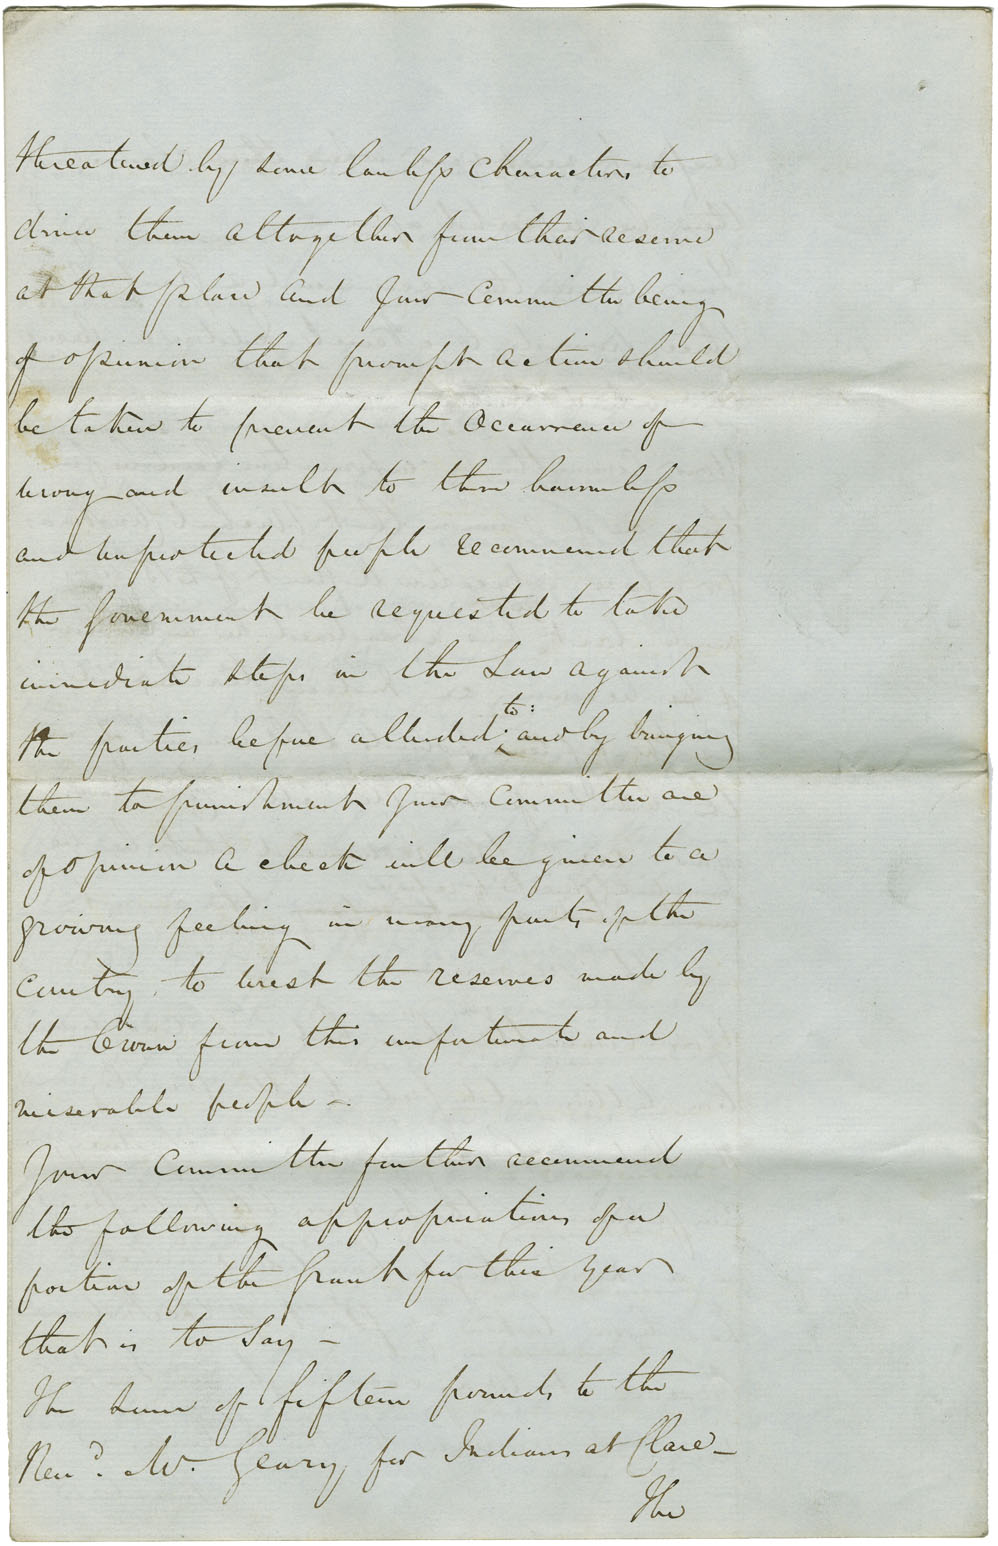 threatened by some lawless characters to
drive them altogether from their reserve
at that place and your Committee being
of opinion that prompt action should
be taken to prevent the occurrence of
wrong and insult to these harmless
and unprotected people recommend that
the Government be requested to take
immediate steps in the Law against
the parties before alluded to: and by bringing
them to punishment your Committee are
of opinion a check will be given to a
growing feeling in many parts of the
country, to wrest the reserves made by
the Crown from this unfortunate and
miserable people –
Your Committee further recommend
the following appropriations of a
portion of the Grant for this year
that is to Say –
The Sum of fifteen pounds to the
Revd. Mr. Geary, for Indians at Clare –
The